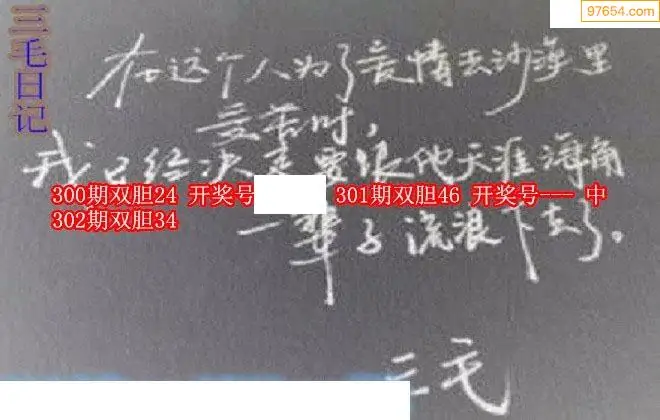 97654.com
三毛日记
在这个人为了爱情去沙漠里
受苦时,
我已经决定要跟他天涯海角
300期双胆24 开奖号 301期双胆46 开奖号--- 中
302期双胆34
一辈子流浪下去了。
三毛